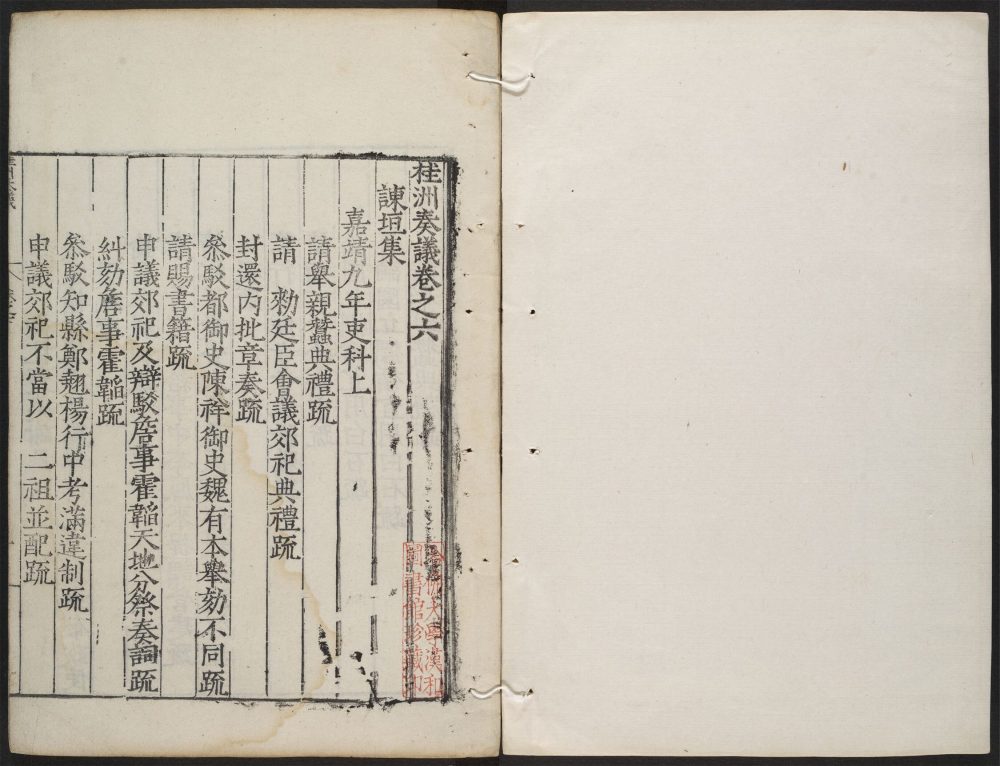 桂洲奏議卷之六
諫垣集
嘉靖九年吏科上
請舉親蠶典禮疏
請 勑廷臣會議郊祀典禮疏
封還内批章奏疏
叅駁都御史陳祥御史魏有本舉劾不同疏
請賜書籍疏
申議郊祀及辯駁詹事霍韜天地分祭奏詞疏
糾劾詹事霍韜疏
叅駁知縣鄭翹楊行中考滿違制疏
申議郊祀不當以 二祖並配疏
佛大學漢和
圖書館珍藏印